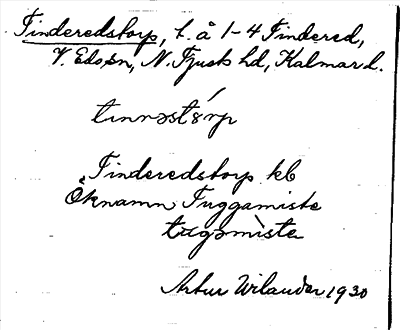 Tinderedstorp, t. å 1-4 Tindered,
V. Eds sn, N. Tjusts hd, Kalmar l.
Tinderedstorp kb
Öknamn Tuggamiste
Artur Wilander 1930